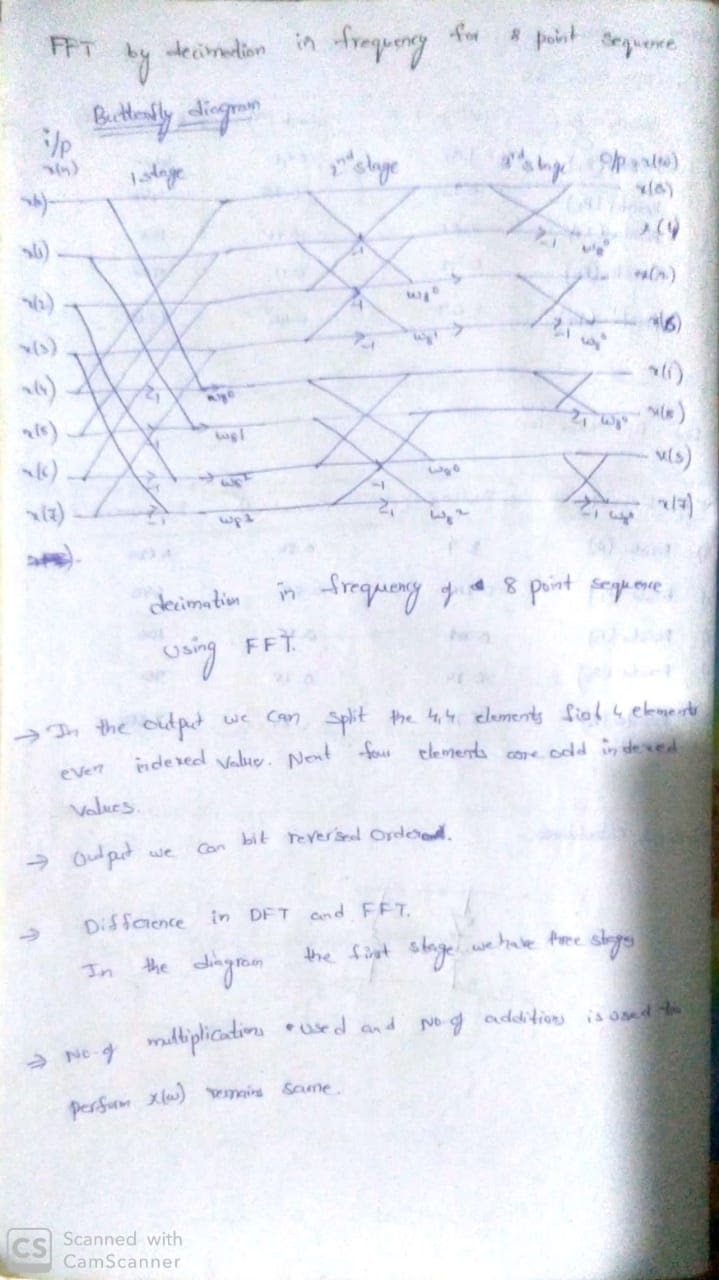 FFT by decimation in frequency for 8 point sequence
Butterfly diagram
i/p
x(n)
1 stage
2nd stage
3rd stage
O/p x(w)
x(0)
x(0)
x(1)
x(4)
x(2)
x(2)
x(3)
x(6)
x(4)
x(1)
x(5)
x(6)
x(3)
x(7)
x(7)
-1
-1
-1
-1
w8^0
w8^1
w8^2
w8^3
-1
-1
w8^0
w8^1
-1
w8^0
w8^2
-1
w8^0
-1
w8^0
-1
w8^0
-1
w8^0
decimation in frequency of 8 point sequence
using FFT.
→ In the output we can split the 4,4 elements first 4 elements
even indexed value. Next four elements are odd indexed
values.
→ Output we can bit reversed ordered.
→ Difference in DFT and FFT.
In the diagram the first stage we have three stages
→ No. of multiplications used and No. of additions is used to
perform x(w) remains same.
CS Scanned with
CamScanner